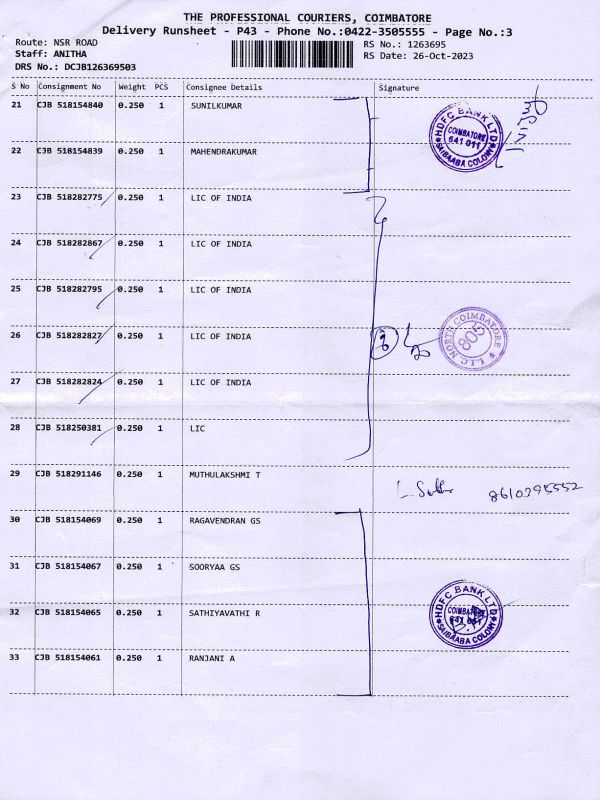 THE PROFESSIONAL COURIERS, COIMBATORE
Delivery Runsheet - P43 - Phone No.:0422-3505555 - Page No.:3
Route: NSR ROAD
Staff: ANITHA
DRS No.: DCJB126369503
RS No.: 1263695
RS Date: 26-Oct-2023
S No Consignment No Weight PCS Consignee Details Signature
21 CJB 518154840 0.250 1 SUNILKUMAR
HDFC BANK LTD
COIMBATORE
641 011
SAIBAABA COLONY
22 CJB 518154839 0.250 1 MAHENDRAKUMAR
23 CJB 518282775 0.250 1 LIC OF INDIA
24 CJB 518282867 0.250 1 LIC OF INDIA
25 CJB 518282795 0.250 1 LIC OF INDIA
26 CJB 518282827 0.250 1 LIC OF INDIA
L.I.C. NORTH COIMBATORE
805
27 CJB 518282824 0.250 1 LIC OF INDIA
28 CJB 518250381 0.250 1 LIC
29 CJB 518291146 0.250 1 MUTHULAKSHMI T
8610395552
30 CJB 518154069 0.250 1 RAGAVENDRAN GS
31 CJB 518154067 0.250 1 SOORYAA GS
32 CJB 518154065 0.250 1 SATHIYAVATHI R
HDFC BANK LTD
COIMBATORE
641 011
SAIBAABA COLONY
33 CJB 518154061 0.250 1 RANJANI A